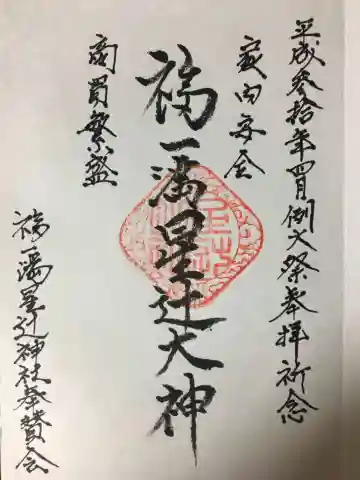 平成参拾年四月例大祭奉拝祈念
家内安全
福一満星辻大神
商買繁盛
福一満星辻神社奉賛会